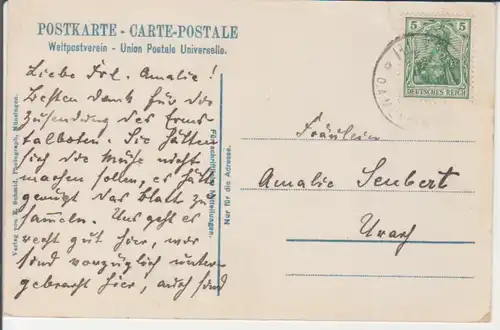 POSTKARTE - CARTE-POSTALE
Weltpostverein - Union Postale Universelle.
Liebe Frl. Amalie!
Besten Dank für die
Zusendung des Erms-
talboten. Sie hätten
sich die Mühe nicht
machen sollen, es hätte
genügt das Blatt zu
sammeln. Uns geht es
recht gut hier, wir
sind vorzüglich unter-
gebracht hier, auch sind
Verlag von E. Schmid, Photograph, Münsingen.
Für schriftliche Mitteilungen.
Nur für die Adresse.
5 5
DEUTSCHES REICH
Fräulein
Amalie Seubert
Urach